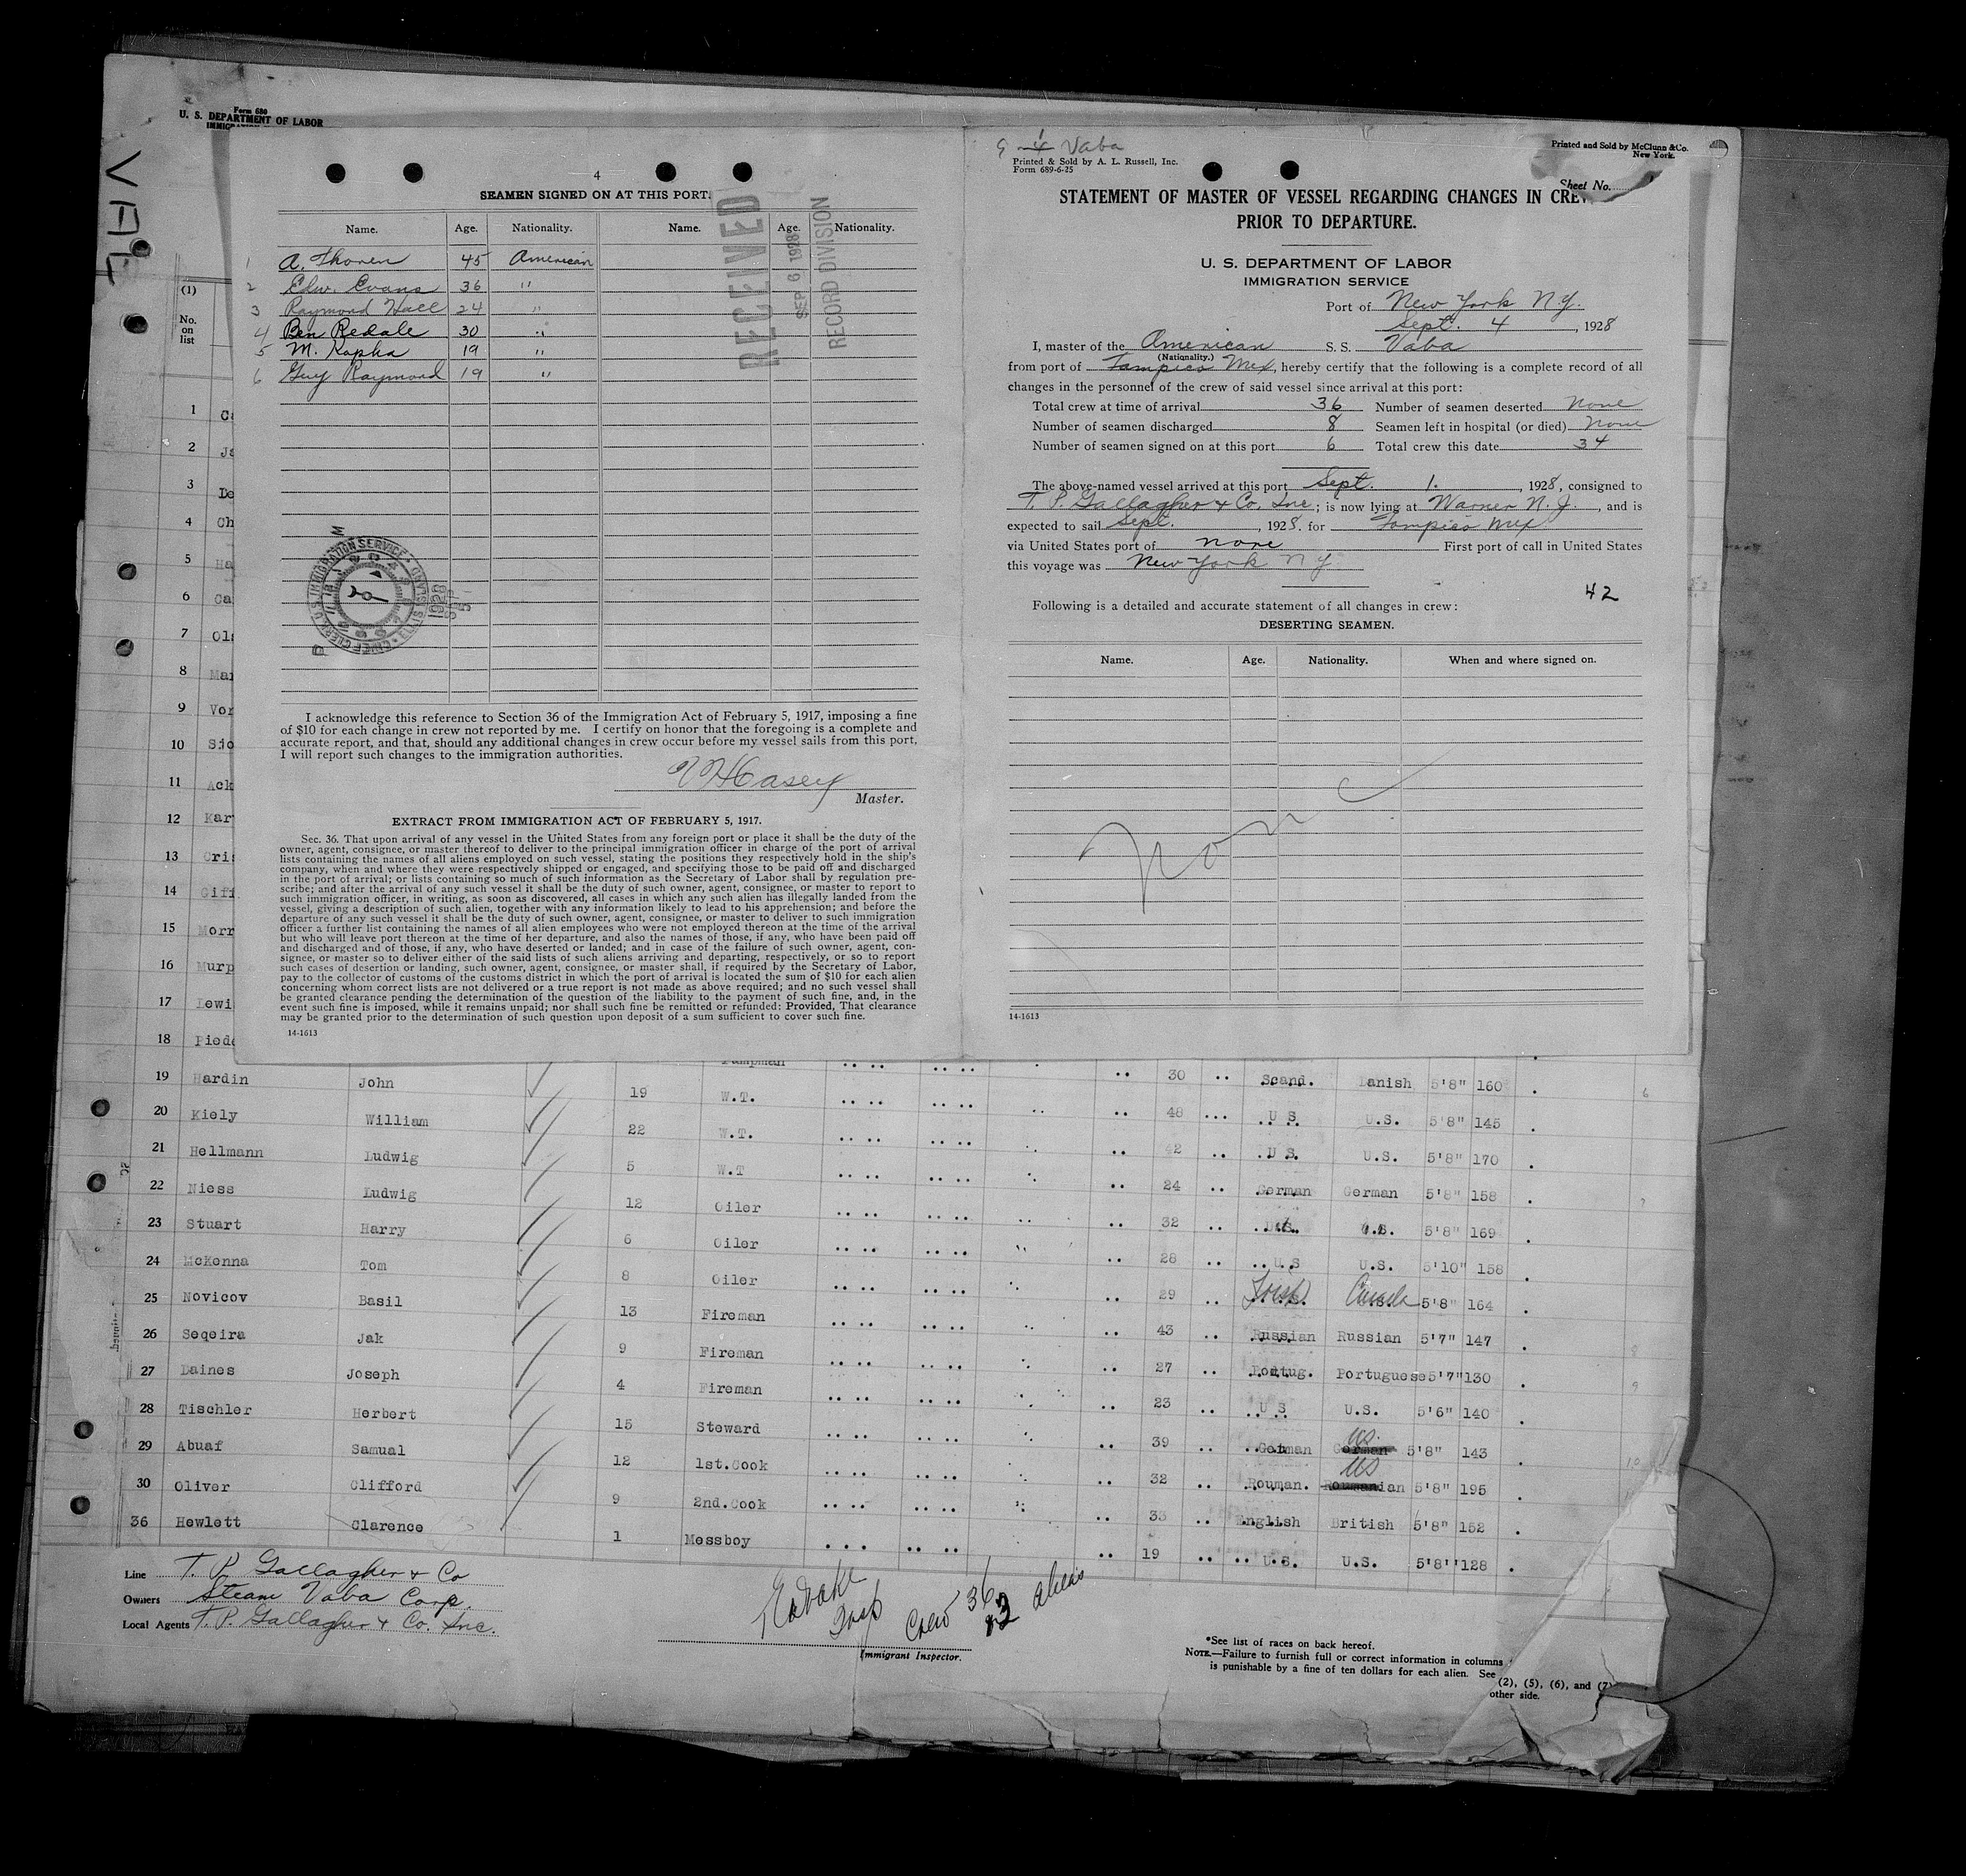 Form 680
U. S. DEPARTMENT OF LABOR
VAL
(1)
No.
on
list
4
SEAMEN SIGNED ON AT THIS PORT.
Name. Age. Nationality. Name. Age. Nationality.
1 A. Thoren 45 American
2 Edw. Evans 36 "
3 Raymond Hall 24 "
4 Ben Redale 30 "
5 M. Kapha 19 "
6 Guy Raymond 19 "
RECEIVED
SEP 6 1928
RECORD DIVISION
I acknowledge this reference to Section 36 of the Immigration Act of February 5, 1917, imposing a fine
of $10 for each change in crew not reported by me. I certify on honor that the foregoing is a complete and
accurate report, and that, should any additional changes in crew occur before my vessel sails from this port,
I will report such changes to the immigration authorities.
Casey
Master.
EXTRACT FROM IMMIGRATION ACT OF FEBRUARY 5, 1917.
Sec. 36. That upon arrival of any vessel in the United States from any foreign port or place it shall be the duty of the
owner, agent, consignee, or master thereof to deliver to the principal immigration officer in charge of the port of arrival
lists containing the names of all aliens employed on such vessel, stating the positions they respectively hold in the ship's
company, when and where they were respectively shipped or engaged, and specifying those to be paid off and discharged
in the port of arrival; or lists containing so much of such information as the Secretary of Labor shall by regulation pre-
scribe; and after the arrival of any such vessel it shall be the duty of such owner, agent, consignee, or master to report to
such immigration officer, in writing, as soon as discovered, all cases in which any such alien has illegally landed from the
vessel, giving a description of such alien, together with any information likely to lead to his apprehension; and before the
departure of any such vessel it shall be the duty of such owner, agent, consignee, or master to deliver to such immigration
officer a further list containing the names of all alien employees who were not employed thereon at the time of the arrival
but who will leave port thereon at the time of her departure, and also the names of those, if any, who have been paid off
and discharged and of those, if any, who have deserted or landed; and in case of the failure of such owner, agent, con-
signee, or master so to deliver either of the said lists of such aliens arriving and departing, respectively, or so to report
such cases of desertion or landing, such owner, agent, consignee, or master shall, if required by the Secretary of Labor,
pay to the collector of customs of the customs district in which the port of arrival is located the sum of $10 for each alien
concerning whom correct lists are not delivered or a true report is not made as above required; and no such vessel shall
be granted clearance pending the determination of the question of the liability to the payment of such fine, and, in the
event such fine is imposed, while it remains unpaid; nor shall such fine be remitted or refunded: Provided, That clearance
may be granted prior to the determination of such question upon deposit of a sum sufficient to cover such fine.
14-1613
Vaba
Printed & Sold by A. L. Russell, Inc.
Form 689-6-25
Printed and Sold by McClunn & Co.
New York.
Sheet No.
STATEMENT OF MASTER OF VESSEL REGARDING CHANGES IN CREW
PRIOR TO DEPARTURE.
U. S. DEPARTMENT OF LABOR
IMMIGRATION SERVICE
Port of New York N.Y.
Sept. 4, 1928
I, master of the American S. S. Vaba
(Nationality.)
from port of Tampico Mex, hereby certify that the following is a complete record of all
changes in the personnel of the crew of said vessel since arrival at this port:
Total crew at time of arrival 36 Number of seamen deserted none
Number of seamen discharged 8 Seamen left in hospital (or died) none
Number of seamen signed on at this port 6 Total crew this date 34
The above-named vessel arrived at this port Sept. 1., 1928, consigned to
T. P. Gallagher & Co. Inc; is now lying at Warner N. J., and is
expected to sail Sept., 1928. for Tampico Mex
via United States port of none First port of call in United States
this voyage was New York N Y
42
Following is a detailed and accurate statement of all changes in crew:
DESERTING SEAMEN.
Name. Age. Nationality. When and where signed on.
None
14-1613
1 Ca
2 Ja
3 De
4 Ch
5 Ha
6 Ca
7 Ols
8 Mar
9 Vor
10 Sjo
11 Ack
12 Kar
13 Cris
14 Giff
15 Morr
16 Murp
17 Lewi
18 Piede Pumpman
19 Hardin John 19 W.T. 30 Scand. Danish 5'8" 160
20 Kiely William 22 W.T. 48 U S U.S. 5'8" 145
21 Hellmann Ludwig 5 W.T 42 U S. U.S. 5'8" 170
22 Niess Ludwig 12 Oiler 24 German German 5'8" 158
23 Stuart Harry 6 Oiler 32 U.S. U.S. 5'8" 169
24 McKenna Tom 8 Oiler 28 U.S U.S. 5'10" 158
25 Novicov Basil 13 Fireman 29 Irish Canada 5'8" 164
26 Seqeira Jak 9 Fireman 43 Russian Russian 5'7" 147
27 Daines Joseph 4 Fireman 27 Portug. Portuguese 5'7" 130
28 Tischler Herbert 15 Steward 23 U S U.S. 5'6" 140
29 Abuaf Samual 12 1st.Cook 39 German German US. 5'8" 143
30 Oliver Clifford 9 2nd.Cook 32 Rouman. Roumanian US 5'8" 195
36 Hewlett Clarence 1 Messboy 33 English British 5'8" 152
19 U.S. U.S. 5'8" 128
Line T. P. Gallagher & Co
Owners Steam Vaba Corp.
Local Agents T. P. Gallagher & Co. Inc.
Insp Crew 36
12 aliens
Immigrant Inspector.
*See list of races on back hereof.
NOTE.—Failure to furnish full or correct information in columns (2), (5), (6), and (7)
is punishable by a fine of ten dollars for each alien. See other side.